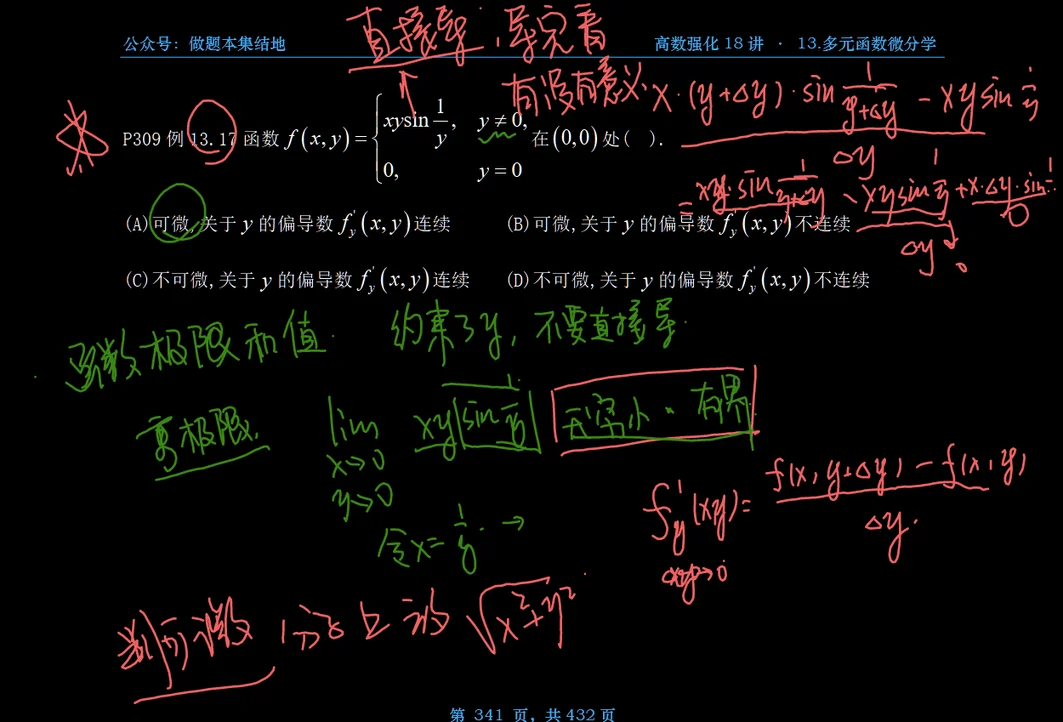 公众号：做题本集结地
高数强化18讲 · 13.多元函数微分学
直接导，导完看
有没有意义
x·(y+Δy)·sin 1/(y+Δy) − xy sin 1/y
Δy
P309 例 13.17 函数 f(x,y)= { xysin 1/y, y≠0, 0, y=0 在(0,0)处( ).
= xy·sin 1/(y+Δy) − xy sin 1/y + x·Δy·sin
Δy
0
(A)可微,关于 y 的偏导数 f'y(x,y)连续
(B)可微,关于 y 的偏导数 f'y(x,y)不连续
(C)不可微,关于 y 的偏导数 f'y(x,y)连续
(D)不可微,关于 y 的偏导数 f'y(x,y)不连续
函数极限和值
约束了y，不要直接导
lim xy sin 1/y
x→0
y→0
无穷小·有界
令x=1/y →
f'y(xy)= f(x,y+Δy) − f(x,y)
Δy
判可微
√x²+y²
第 341 页，共 432 页